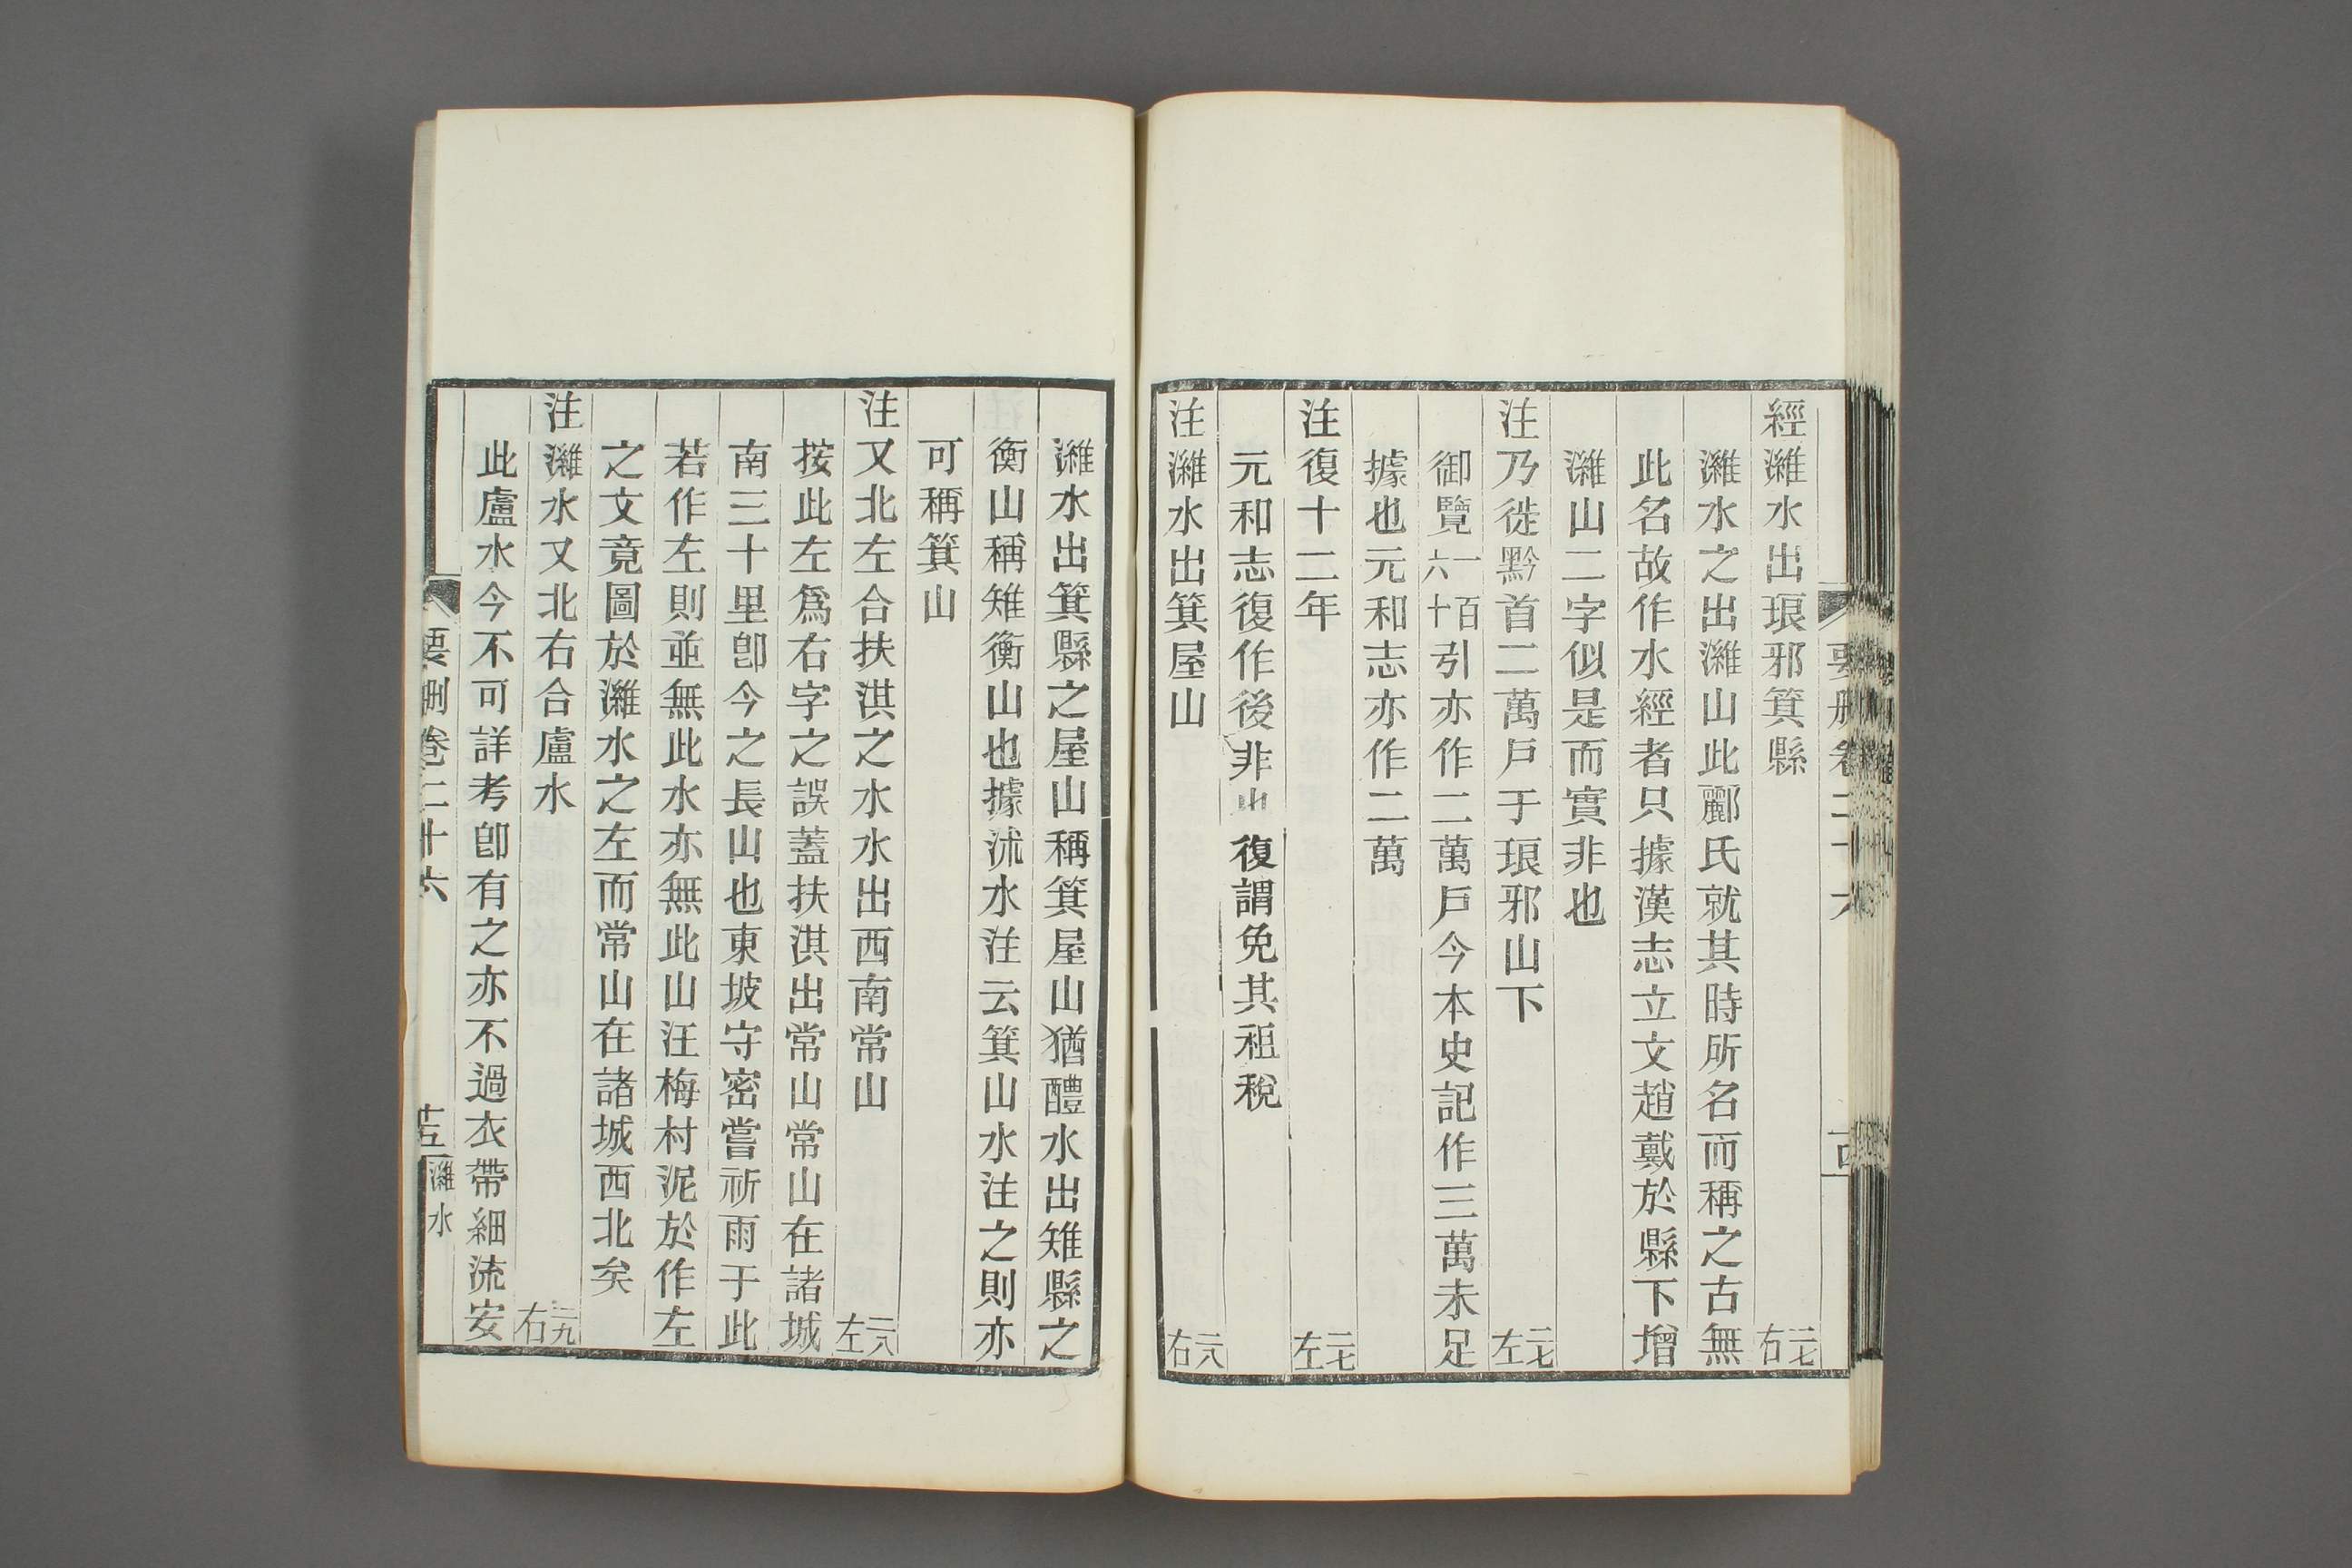 經濰水出琅邪箕縣 二七右
濰水之出濰山此酈氏就其時所名而稱之古無
此名故作水經者只據漢志立文趙戴於縣下增
濰山二字似是而實非也
注乃徙黔首二萬戶于琅邪山下 二七左
御覽一百六十引亦作二萬戶今本史記作三萬未足
據也元和志亦作二萬
注復十二年 二七左
元和志復作後非也復謂免其租稅
注濰水出箕屋山 二八右
濰水出箕縣之屋山稱箕屋山猶醴水出雉縣之
衡山稱雉衡山也據沭水注云箕山水注之則亦
可稱箕山
注又北左合扶淇之水水出西南常山 二八左
按此左爲右字之誤蓋扶淇出常山常山在諸城
南三十里卽今之長山也東坡守密嘗祈雨于此
若作左則並無此水亦無此山汪梅村泥於作左
之文竟圖於濰水之左而常山在諸城西北矣
注濰水又北右合盧水 二九右
此盧水今不可詳考卽有之亦不過衣帶細流安
要刪卷二十六 濰水